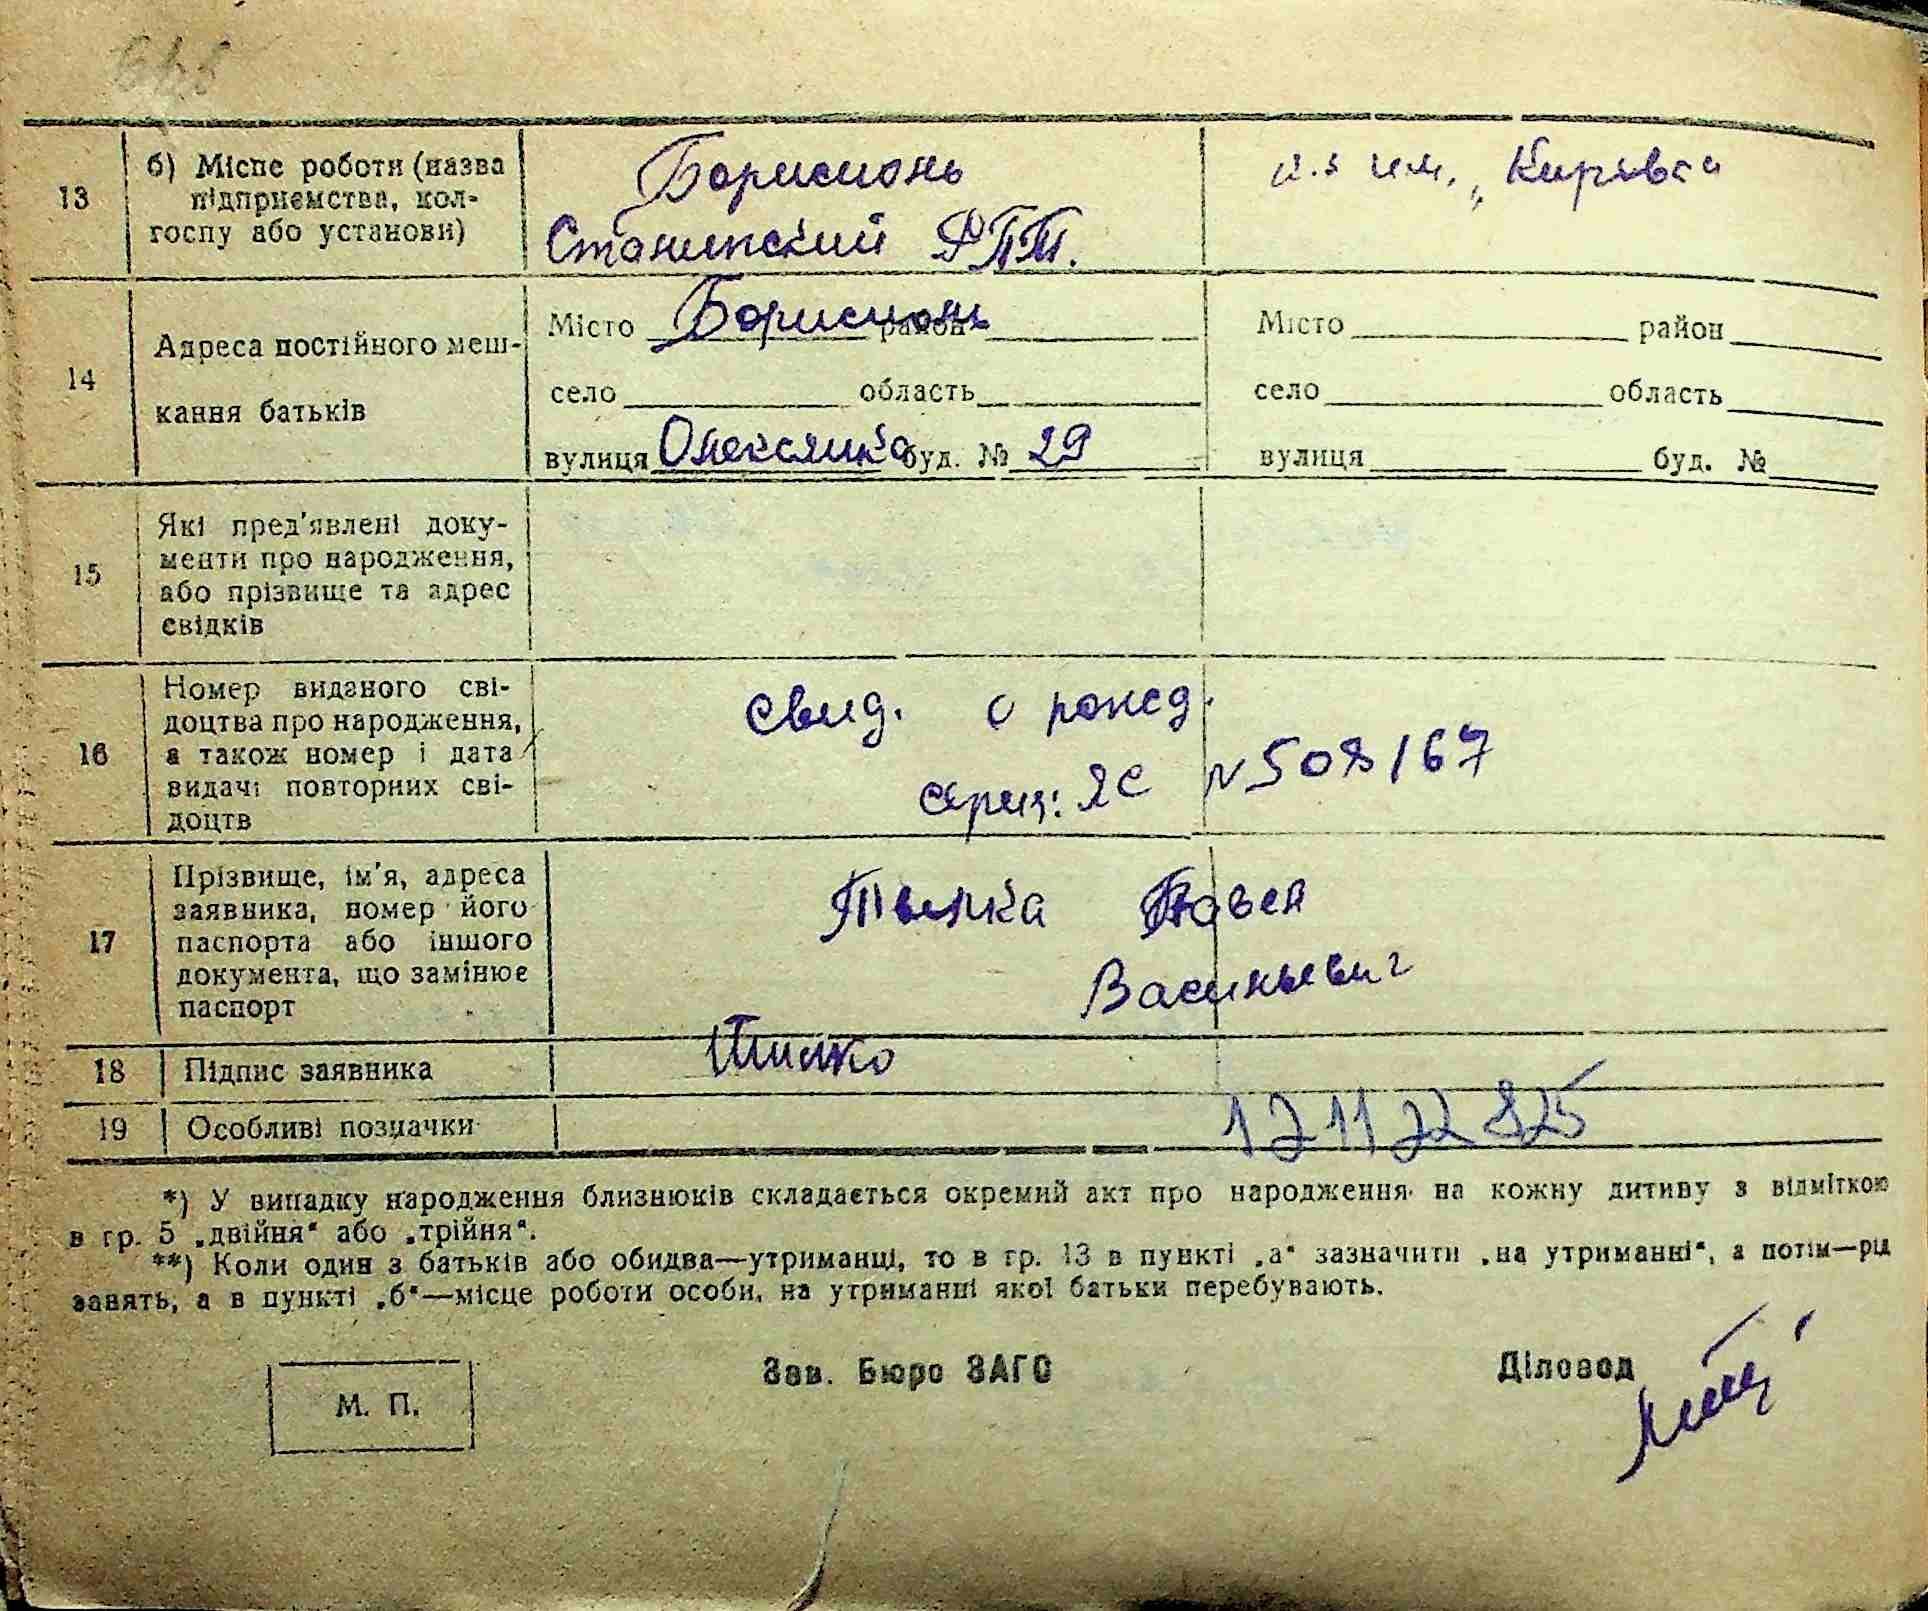 13
б) Місце роботи (назва
підприємства, кол-
госпу або установи)
Борислионь
Станипский ДПТП.
к.з им. „Кирова"
14
Адреса постійного меш-
кання батьків
Місто Борислионь район
село область
вулиця буд. № 29
Місто район
село область
вулиця буд. №
15
Які пред'явлені доку-
менти про народження,
або прізвище та адрес
свідків
16
Номер виданого сві-
доцтва про народження,
а також номер і дата
видачі повторних сві-
доцтв
свид. о рожд.
серия: ЯС N 508167
17
Прізвище, ім'я, адреса
заявника, номер його
паспорта або іншого
документа, що замінює
паспорт
Павел
Васильевич
18
Підпис заявника
19
Особливі позначки
*) У випадку народження близнюків складається окремий акт про народження на кожну дитину з відміткою
в гр. 5 „двійня" або „трійня".
**) Коли один з батьків або обидва—утриманці, то в гр. 13 в пункті „а" зазначити „на утриманні", а потім—рід
занять, а в пункті „б"—місце роботи особи, на утриманні якої батьки перебувають.
М. П.
Зав. Бюро ЗАГС
Діловод